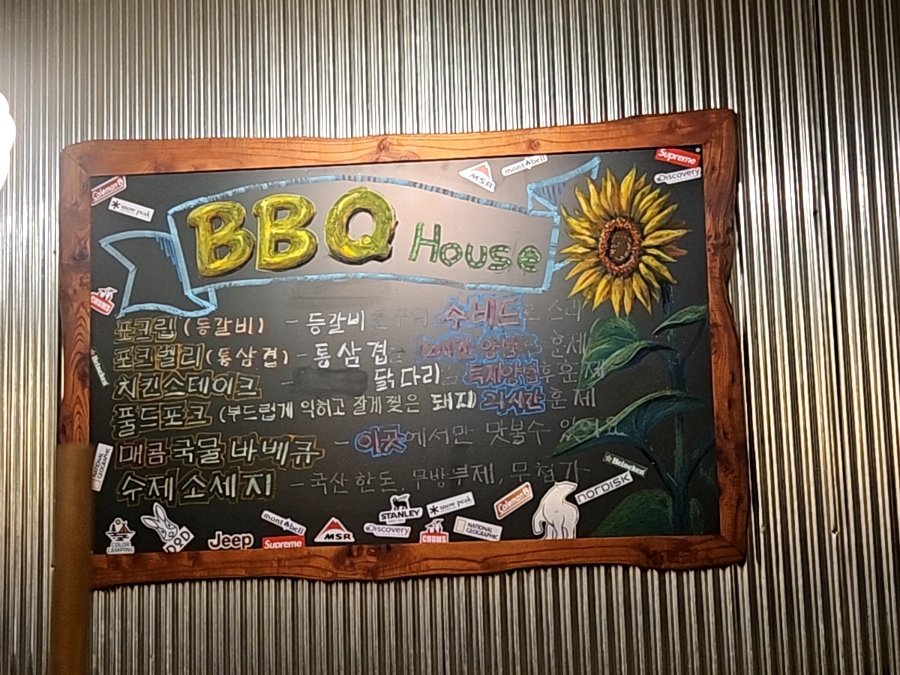 Coleman
snow peak
MSR
mont·bell
Supreme
Discovery
BBQ House
CHUMS
포크립 (등갈비) - 등갈비 수비드
포크벨리 (통삼겹) - 통삼겹 훈제
치킨스테이크 - 닭다리 특제양념 후 훈제
풀드포크 (부드럽게 익히고 잘게 찢은 돼지 24시간 훈제
매콤국물 바베큐 - 이곳에서만 맛볼수 있어요
수제 소세지 - 국산 한돈, 무방부제, 무첨가
Heineken
NATIONAL GEOGRAPHIC
Heineken
NORDISK
COLOR CAMPING
DOD
Jeep
mont·bell
Supreme
MSR
Discovery
STANLEY
CHUMS
snow peak
NATIONAL GEOGRAPHIC
Coleman